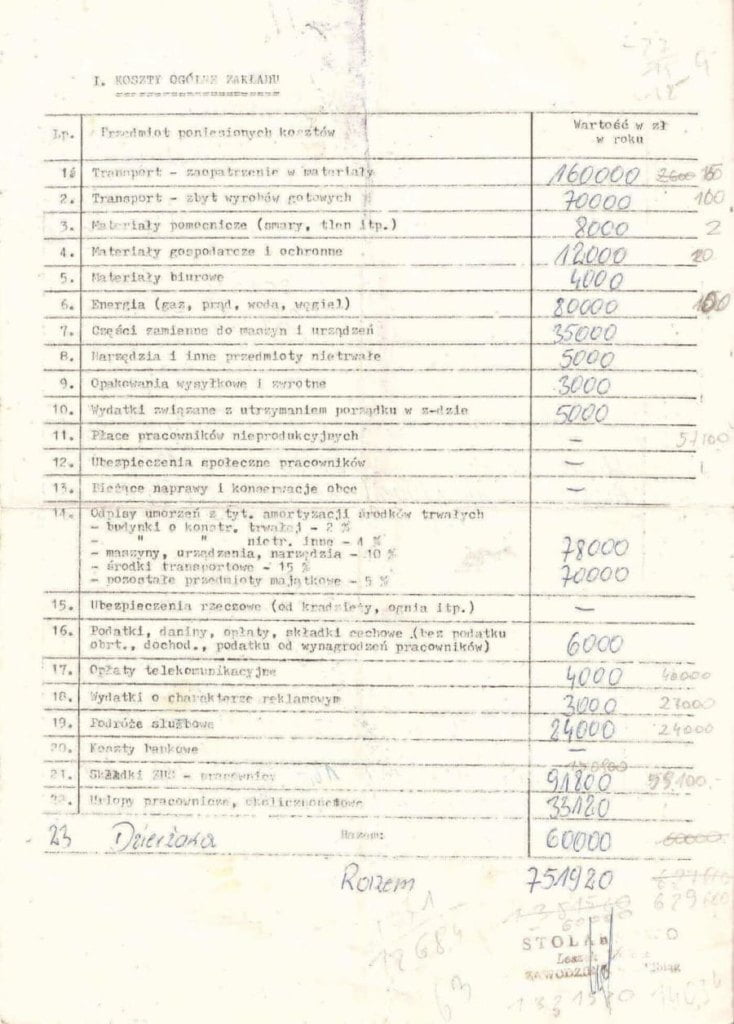 I. KOSZTY OGÓLNE ZAKŁADU
Lp. Przedmiot poniesionych kosztów Wartość w zł
w roku
1. Transport - zaopatrzenie w materiały 160000
2. Transport - zbyt wyrobów gotowych 70000 100
3. Materiały pomocnicze (smary, tlen itp.) 8000 2
4. Materiały gospodarcze i ochronne 12000 20
5. Materiały biurowe 4000
6. Energia (gaz, prąd, woda, węgiel) 80000
7. Części zamienne do maszyn i urządzeń 35000
8. Narzędzia i inne przedmioty nietrwałe 5000
9. Opakowania wysyłkowe i zwrotne 3000
10. Wydatki związane z utrzymaniem porządku w z-dzie 5000
11. Płace pracowników nieprodukcyjnych - 57100
12. Ubezpieczenia społeczne pracowników -
13. Bieżące naprawy i konserwacje obce -
14. Odpisy umorzeń z tyt. amortyzacji środków trwałych
- budynki o konstr. trwałej - 2 %
- " " nietr. inne - 4 %
- maszyny, urządzenia, narzędzia - 10 % 78000
- środki transportowe - 15 %
- pozostałe przedmioty majątkowe - 5 % 70000
15. Ubezpieczenia rzeczowe (od kradzieży, ognia itp.) -
16. Podatki, daniny, opłaty, składki cechowe (bez podatku
obrt., dochod., podatku od wynagrodzeń pracowników) 6000
17. Opłaty telekomunikacyjne 4000 40000
18. Wydatki o charakterze reklamowym 3000 27000
19. Podróże służbowe 24000 24000
20. Koszty bankowe -
21. Składki ZUS - pracownicy 91800
22. Urlopy pracownicze, okolicznościowe 33120
23 Dzierżawa Razem: 60000 60000
Razem 751920
629600
STOLA
ZAWODZ